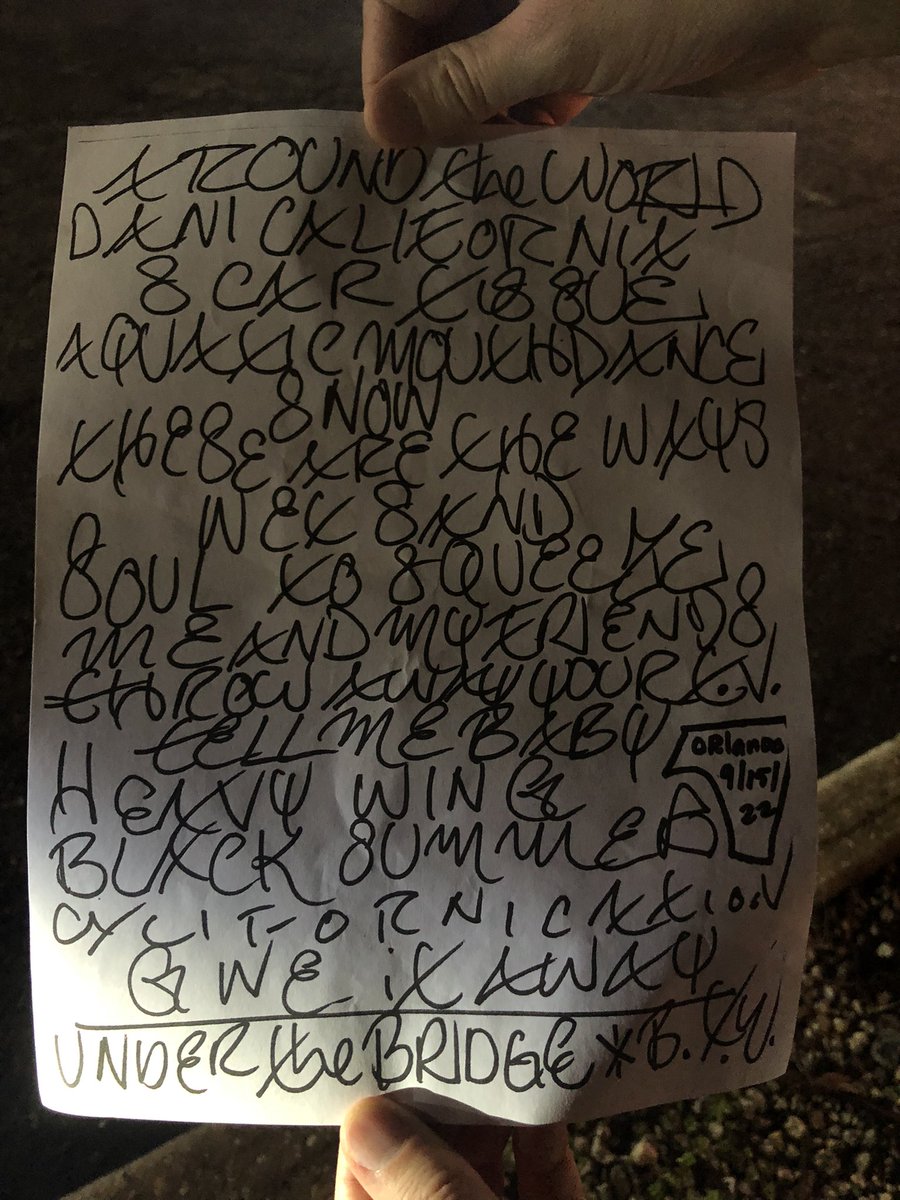 AROUND the WORLD
DANI CALIFORNIA
SCAR TISSUE
AQUATIC MOUTH DANCE
SNOW
THESE ARE THE WAYS
WET SAND
SOUL TO SQUEEZE
ME AND MY FRIENDS
THROW AWAY YOUR T.V.
TELL ME BABY
HEAVY WING
ORlando
9/15/
22
BLACK SUMMER
CALIFORNICATION
GIVE IT AWAY
UNDER the BRIDGE * B.T.W.